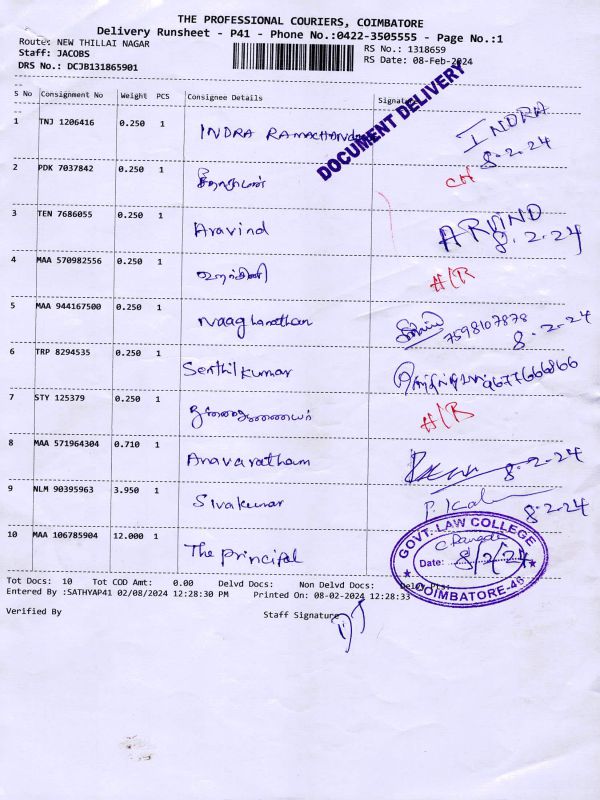 THE PROFESSIONAL COURIERS, COIMBATORE
Delivery Runsheet - P41 - Phone No.:0422-3505555 - Page No.:1
Route: NEW THILLAI NAGAR
RS No.: 1318659
Staff: JACOBS
RS Date: 08-Feb-2024
DRS No.: DCJB131865901
DOCUMENT DELIVERY
S No Consignment No Weight PCS Consignee Details Signature
1 TNJ 1206416 0.250 1 INDRA RAMACHANDRAN INDRA
8-2-24
2 PDK 7037842 0.250 1 CH
3 TEN 7686055 0.250 1 Aravind ARVIND
8-2-24
4 MAA 570982556 0.250 1 H/R
5 MAA 944167500 0.250 1 Naaghanathan 7598107878
8-2-24
6 TRP 8294535 0.250 1 Senthil kumar 9677666866
7 STY 125379 0.250 1 H/R
8 MAA 571964304 0.710 1 Anavaratham 8-2-24
9 NLM 90395963 3.950 1 Sivakumar 8-2-24
10 MAA 106785904 12.000 1 The Principal
GOVT. LAW COLLEGE
Date: 8/2/24
COIMBATORE-46
Tot Docs: 10 Tot COD Amt: 0.00 Delvd Docs: Non Delvd Docs:
Entered By :SATHYAP41 02/08/2024 12:28:30 PM Printed On: 08-02-2024 12:28:33
Verified By Staff Signature